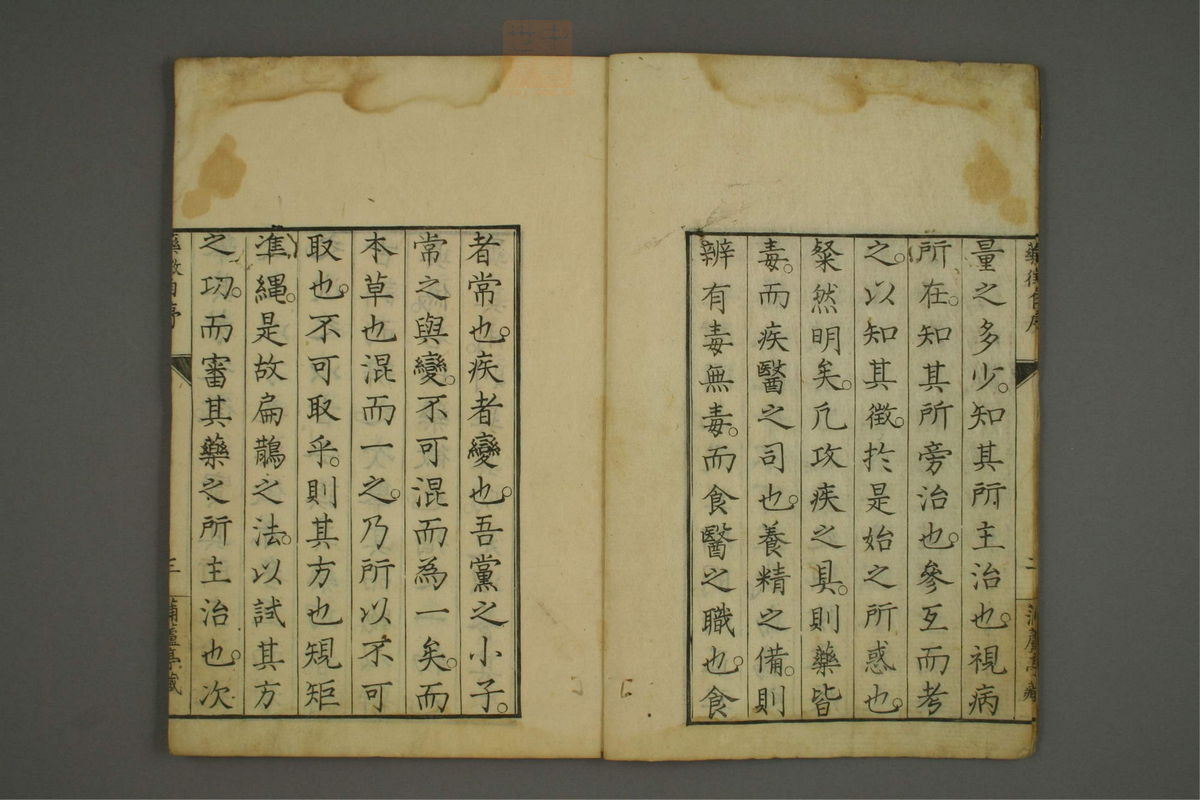 量之多少。知其所主治也。視病
所在。知其所旁治也。參互而考
之。以知其徴。於是始之所惑也。
粲然明矣。凢攻疾之具。則藥皆
毒。而疾醫之司也。養精之備。則
辨有毒無毒。而食醫之職也。食
者常也。疾者變也。吾黨之小子。
常之與變。不可混而為一矣。而
本草也混而一之。乃所以不可
取也。不可取乎。則其方也䂓矩
凖繩。是故扁鵲之法。以試其方
之功。而審其藥之所主治也。次
藥徴自序
三